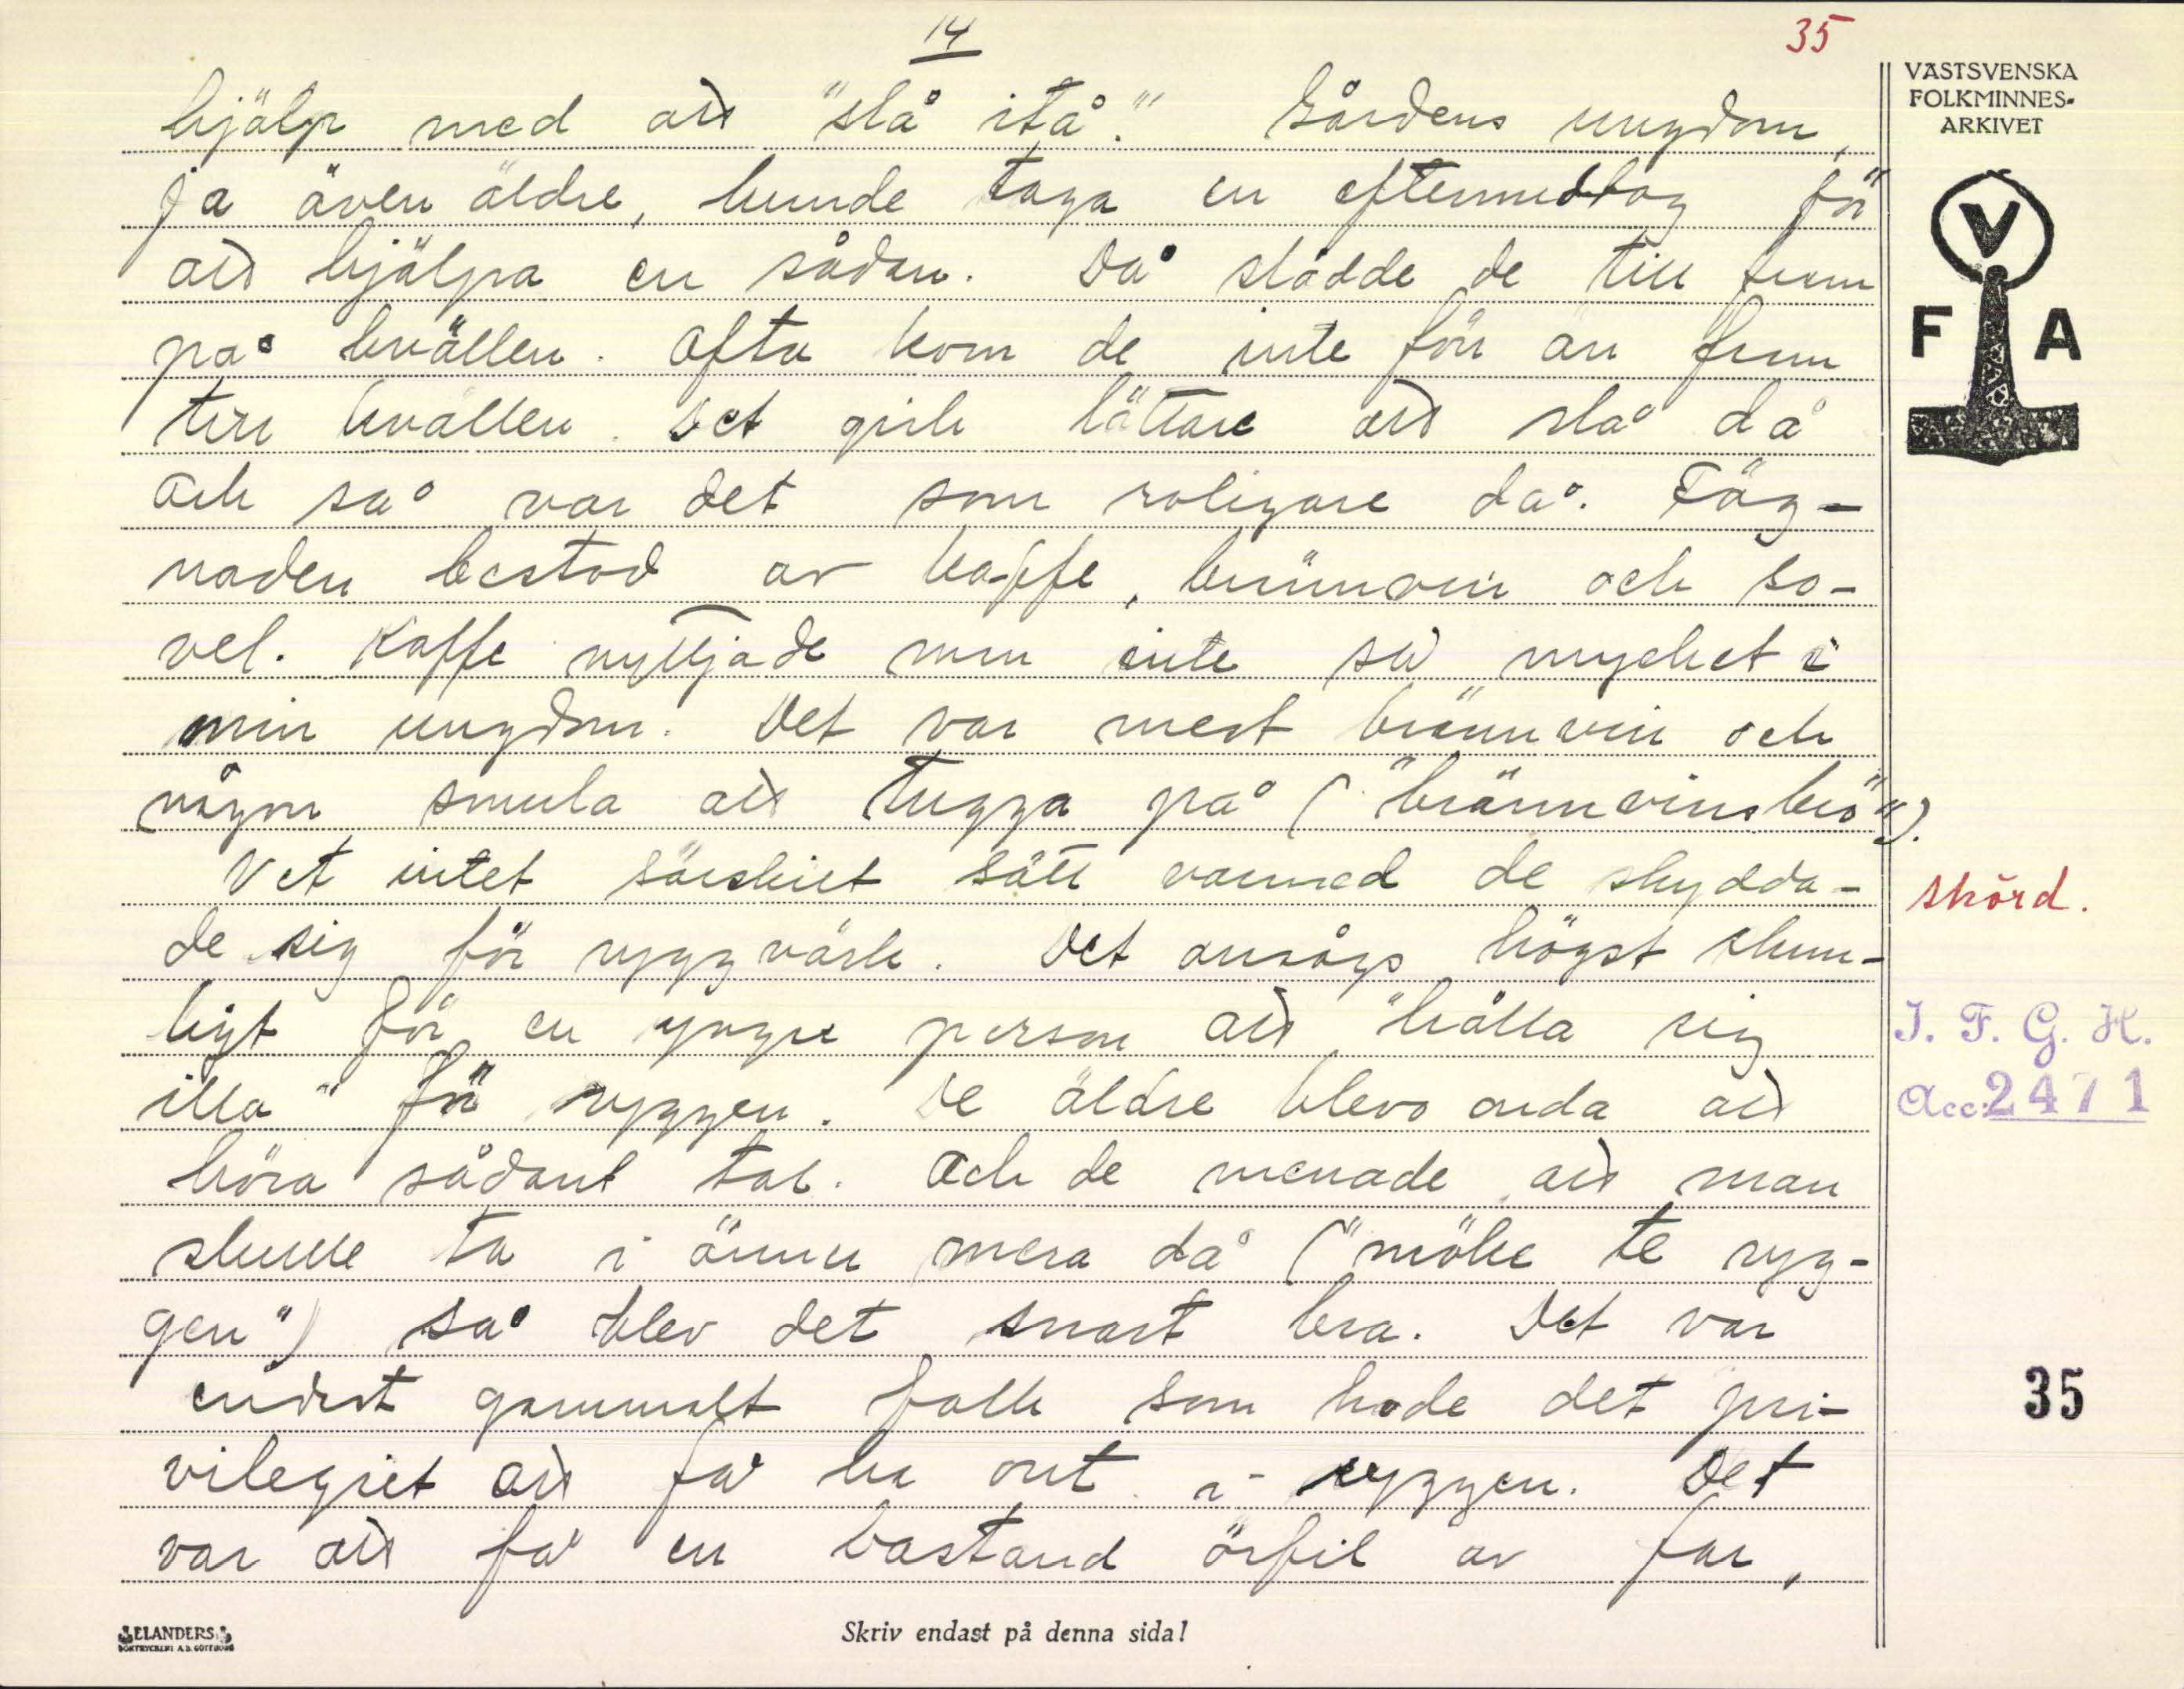 14
35
hjälp med att "slå itå". Gårdens ungdom,
ja även äldre, kunde taga en eftermiddag för
att hjälpa en sådan. Då slådde de till fram
på kvällen. Ofta kom de inte förr än fram
till kvällen. Det gick lättare att slå då
och så var det som roligare då. Täg-
naden bestod av kaffe, brännvin och so-
vel. Kaffe nyttjade man inte så mycket i
min ungdom. Det var mest brännvin och
någon smula att tugga på ("brännvinsbrö").
Vet intet särskilt sätt varmed de skydda-
de sig för ryggvärk. Det ansågs högst skam-
ligt för en yngre person att "hålla sig
illa" för ryggen. De äldre blevo onda att
höra sådant tal. Och de menade att man
skulle ta i ännu mera då ("möke te ryg-
gen") så blev det snart bra. Det var
endast gammalt folk som hade det pri-
vilegiet att få ha ont i ryggen. Det
var att få en bastand örfil av far,
VÄSTSVENSKA
FOLKMINNES-
ARKIVET
V
F A
skörd.
I. F. G. H.
Acc: 2471
35
ELANDERS
BOKTRYCKERI A.B. GÖTEBORG
Skriv endast på denna sida!